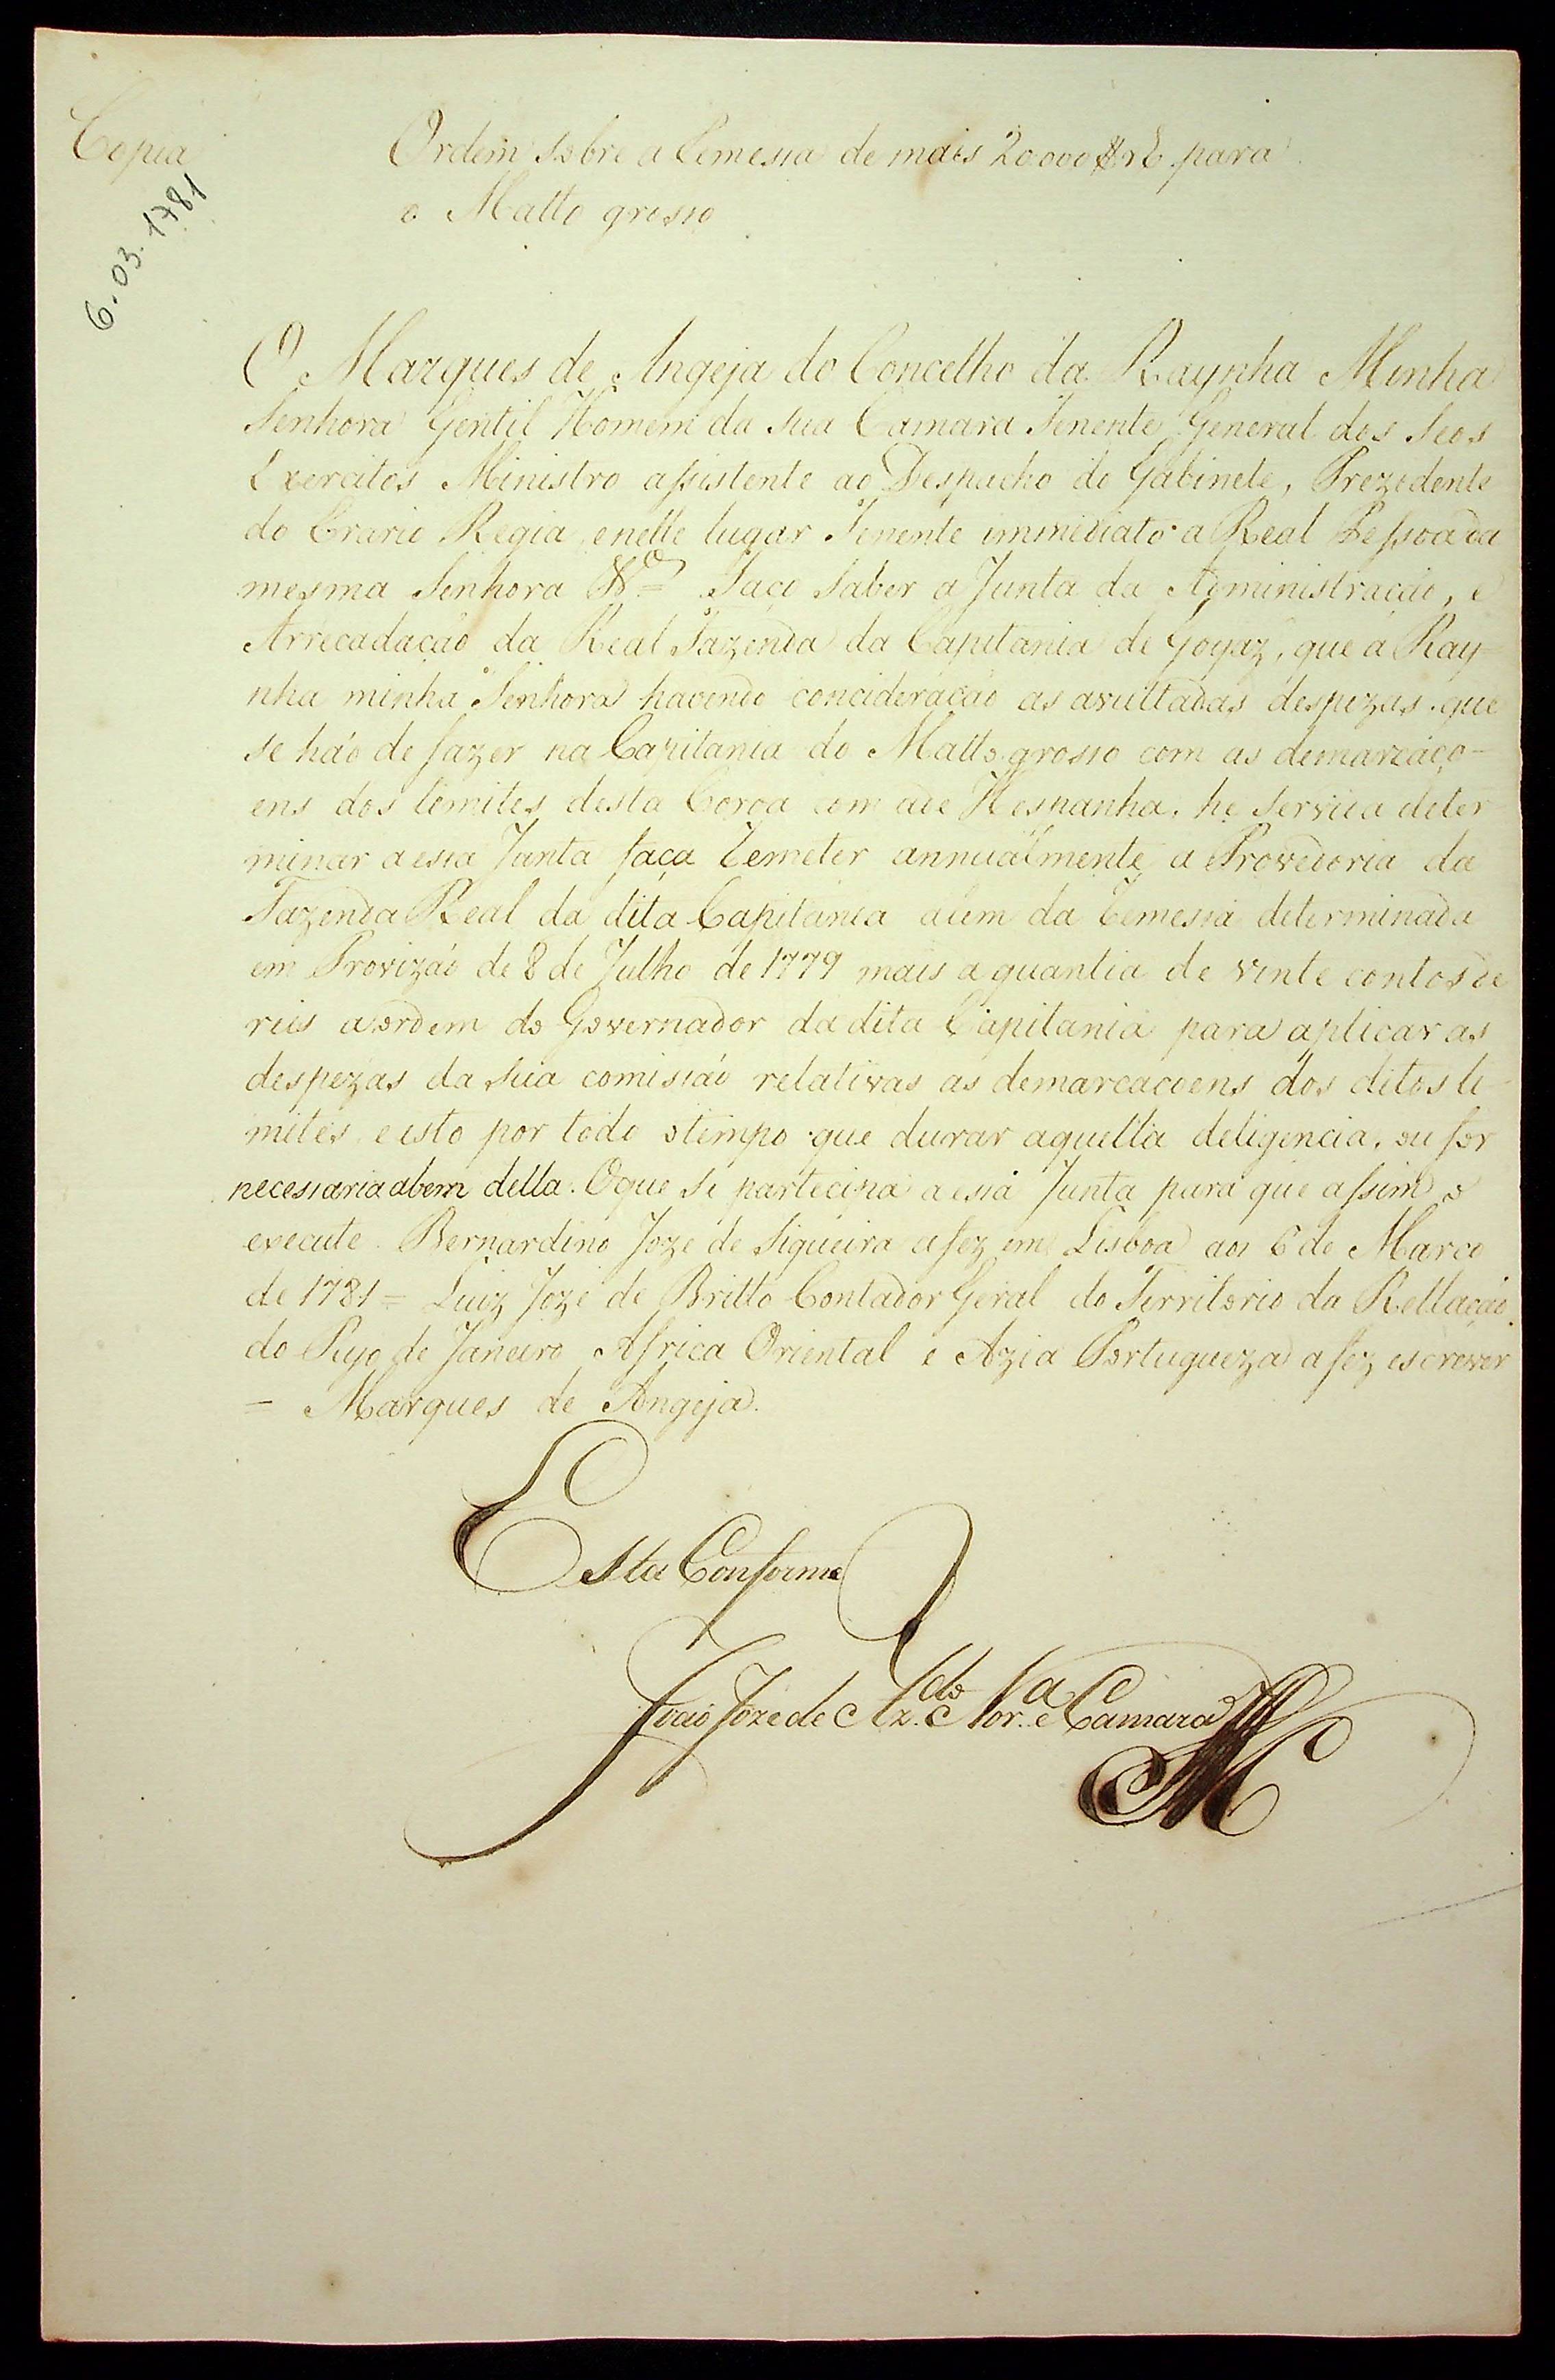 Copia
6.03.1781
Ordem sobre a Remessa de mais 20000$rs. para
o Matto grosso
O Marques de Angeja do Concelho da Raynha Minha
Senhora Gentil Homem da sua Camara Tenente General dos Seos
Exercitos Ministro assistente ao Despacho do Gabinete, Prezidente
do Erario Regia enelle lugar Tenente immidiato a Real Pessoa da
mesma Senhora &ª= Faço saber a Junta da Administração, e
Arrecadação da Real Fazenda da Capitania de Goyaz, que a Ray=
nha minha Senhora havendo concideração as avultadas despezas que
se háo de fazer na Capitania do Matto grosso com as demarcaço-
ens dos limites desta Coroa com ade Hespanha, he servida deter
minar aessa Junta faça Remeter annualmente a Provedoria da
Fazenda Real da dita Capitania alem da Remessa determinada
em Provizáo de 8 de Julho de 1779 mais a quantia de vinte contos de
reis a ordem do Governador da dita Capitania para aplicar as
despezas da sua comissáo relativas as demarcacoens dos ditos li-
mites, e isto por todo o tempo que durar aquella deligencia, ou for
necessaria abem della. Oque se partecipa a essa Junta para que assim o
execute. Bernardino Joze de Siqueira afez em Lisboa aos 6 de Marco
de 1781= Luiz Joze de Britto Contador Geral do Territorio da Rellação
do Ryo de Janeiro Africa Oriental e Azia Portugueza a fez escrever
= Marques de Angeja.
Esta Conforme
João Joze de Az.do Nor.a e Camara